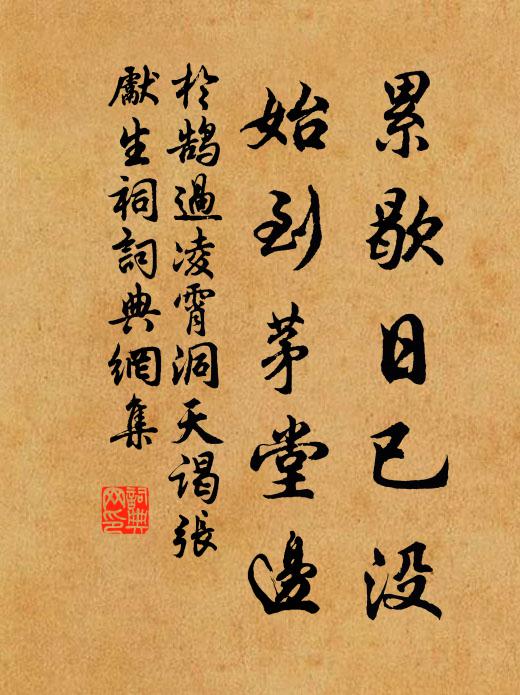 累歇日已没
始到茅堂邊
於鹄過凌霄洞天謁張
獻生祠詞典網集
詞典
网印